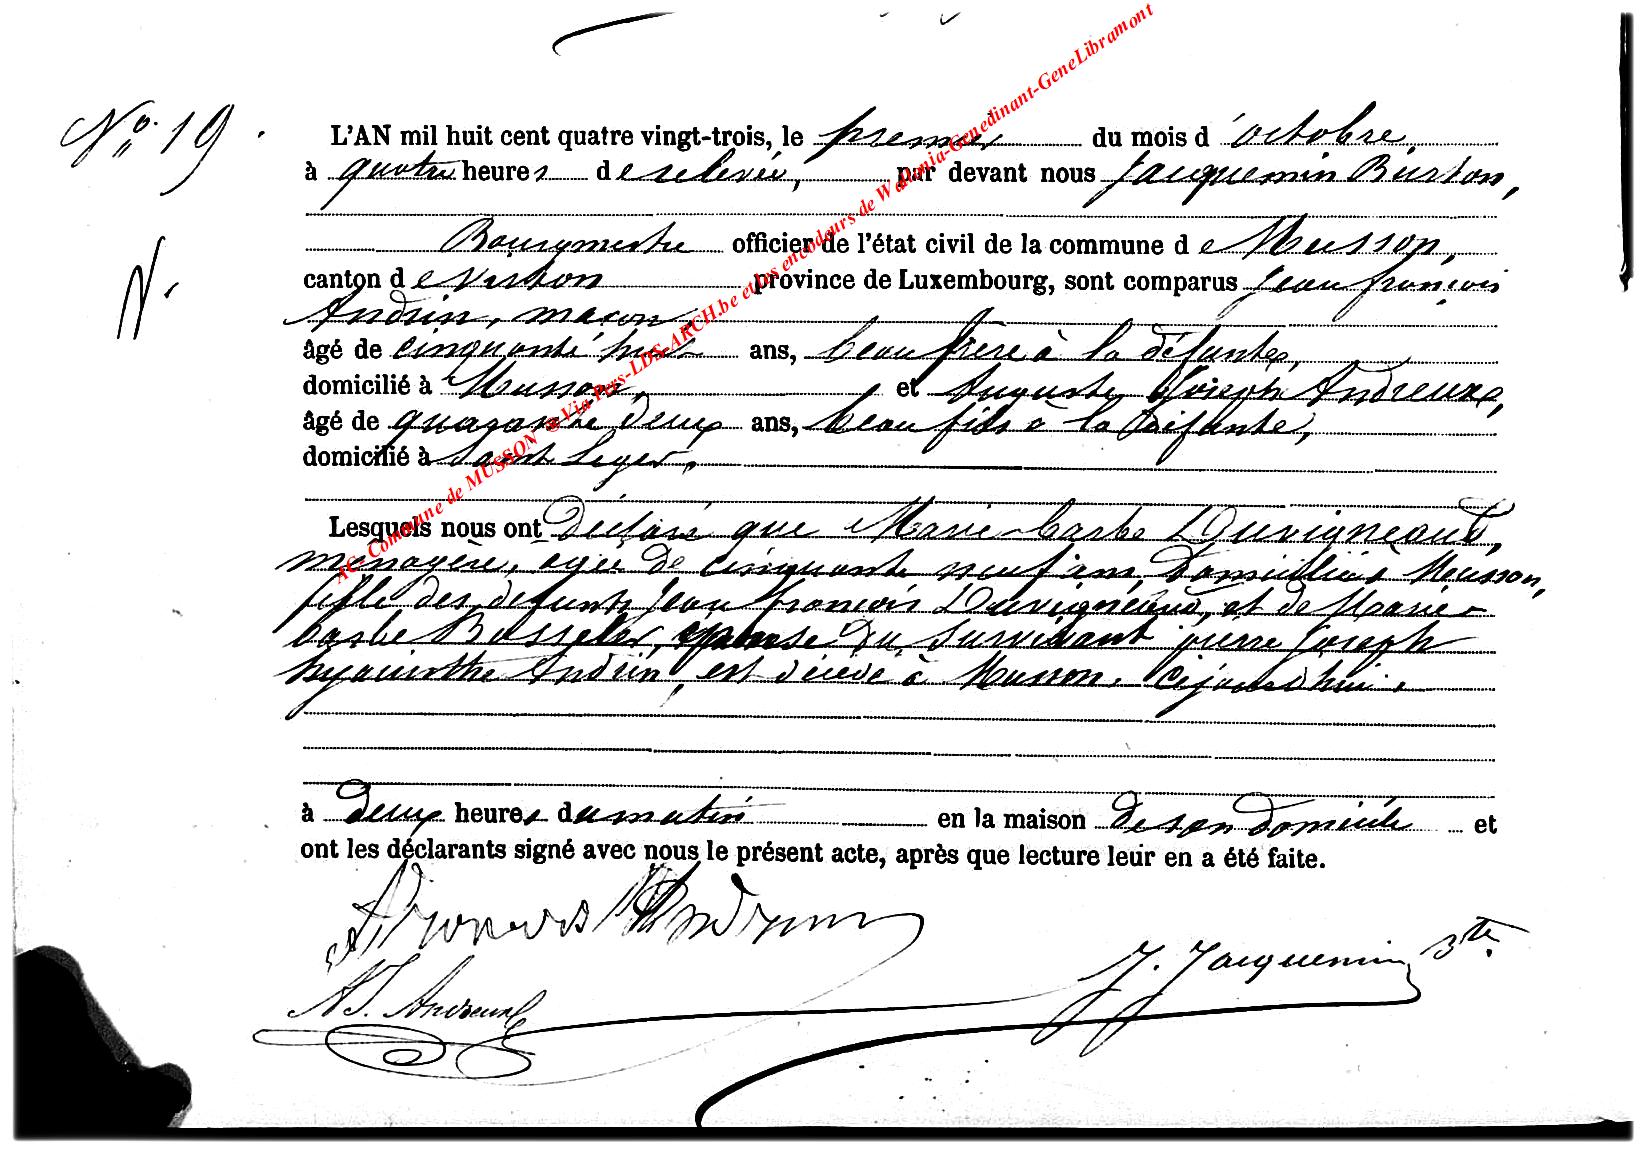 Nº 19.
N.
L'AN mil huit cent quatre vingt-trois, le premier du mois d'octobre,
à quatre heures de relevée, par devant nous Jacquemin Burton,
Bourgmestre officier de l'état civil de la commune de Musson,
canton de Virton province de Luxembourg, sont comparus Jean françois
Andrin, maçon,
âgé de cinquante huit ans, beau frère à la défunte,
domicilié à Musson, et Auguste Joseph Andreux,
âgé de quarante deux ans, beau fils à la défunte,
domicilié à Saint Leger,
Lesquels nous ont Déclaré que Marie-barbe Duvigneaud,
ménagère, agée de cinquante neuf ans, Domiciliée à Musson,
fille des défunts Jean françois Duvigneaud, et de Marie-
barbe Bosseler, épouse Du survivant pierre Joseph
hyacinthe Andrin, est décédé à Musson, cejourd'hui,
à Deux heures du matin en la maison de son Domicile et
ont les déclarants signé avec nous le présent acte, après que lecture leur en a été faite.
François Andrin
A J. Andreux
J. Jacquemin Bte.
AC-Commune de MUSSON @ Via Pers-LDS-ARCH.be et les encodeurs de Wallonia-Genedinant-GeneLibramont